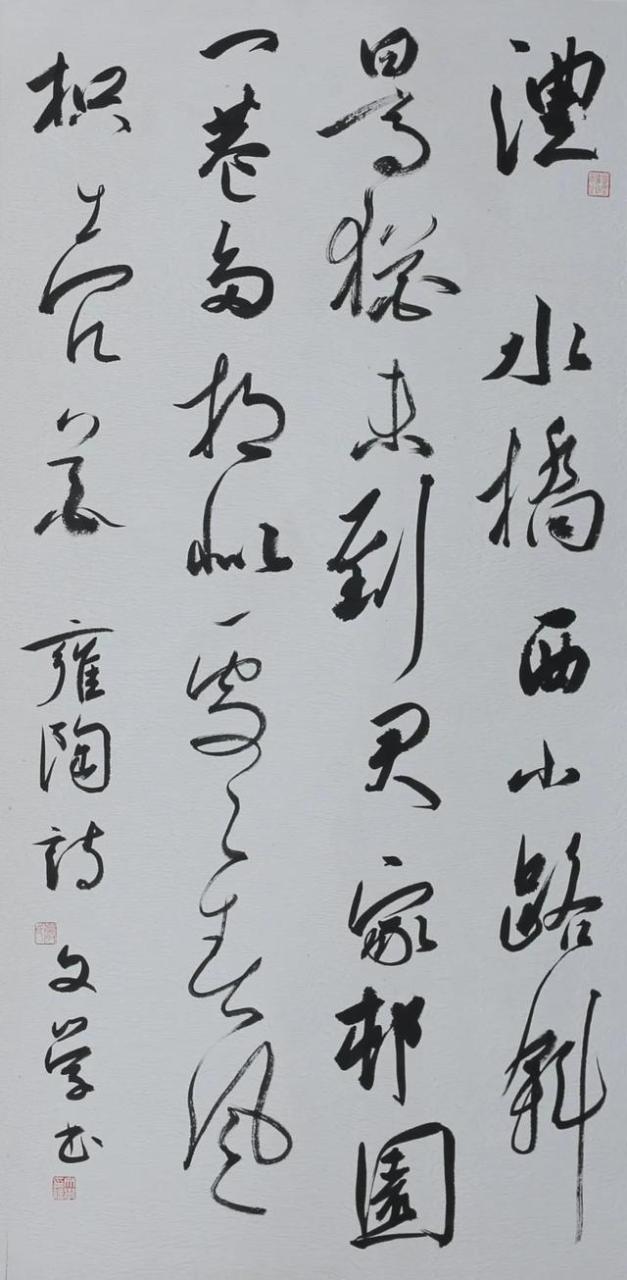 澧水橋西小路斜
日高猶未到君家邨園
門巷多相似處々春風
枳殼花 雍陶詩 文学书